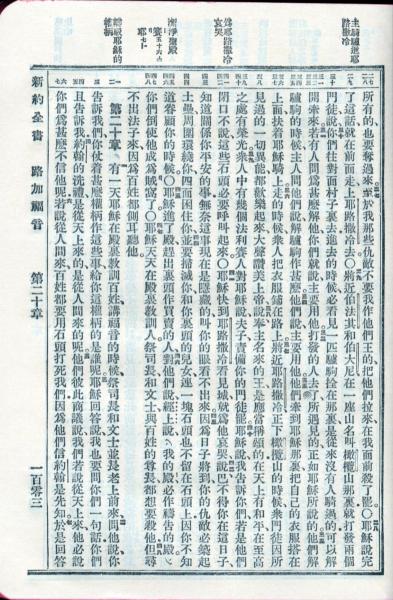 主騎驢進耶路撒冷
爲耶路撒冷哀哭
潔淨聖殿
辯駁耶穌的權柄
所有的也要奪過來至於我那些仇敵不要我作他們王的把他們拉來在我面前殺了罷〇耶穌說完
了這話就在前面走上耶路撒冷去〇將近伯法其和伯大尼在一座山名叫橄欖山那裏就打發兩個
門徒說你們往對面村子裏去進去的時候必看見一匹驢駒拴在那裏是從來沒有人騎過的可以解
開牽來若有人問爲甚麼解他你們就說主要用他打發的人去了所遇見的正如耶穌所說的他們解
驢駒的時候主人問他們說解驢駒作甚麼他們說主要用他他們牽到耶穌那裏把自己的衣服搭在
上面扶着耶穌騎上走的時候衆人把衣服鋪在路上將近耶路撒冷正下橄欖山的時候衆門徒因所
見過的一切異能都歡樂起來大聲讚美上帝說奉主名來的王是應當稱頌的在天上有和平在至高
之處有榮光衆人中有幾個法利賽人對耶穌說夫子責備你的門徒罷耶穌說我告訴你們若是他們
閉口不說這些石頭必要呼叫起來〇耶穌快到耶路撒冷看見城就爲他哀哭說巴不得你在這日子
知道關係你平安的事無奈這事現在是隱藏的叫你的眼看不出來因爲日子將到你的仇敵必築起
土壘周圍環繞你四面困住你並要掃滅你和你裏頭的兒女連一塊石頭也不留在石頭上因你不知
道眷顧你的時候〇耶穌進了殿趕出裏頭作買賣的人對他們說經上說我的殿必作禱告的殿
你們倒使他成爲賊窩了〇耶穌天天在殿裏教訓人祭司長和文士與百姓的尊長都想要殺他但尋
不出法子來因爲百姓都側耳聽他
第二十章 有一天耶穌在殿裏教訓百姓講福音的時候祭司長和文士並長老上前來問他說你
告訴我們你仗着甚麼權柄作這些事給你這權柄的是誰呢耶穌回答說我也要問你們一句話你們
且告訴我約翰的洗禮是從天上來的是從人間來的呢他們彼此商議說我們若說從天上來他必說
你們爲甚麼不信他呢若說從人間來百姓都要用石頭打死我們因爲他們信約翰是先知於是回答
新約全書 路加福音 第二十章 一百零三